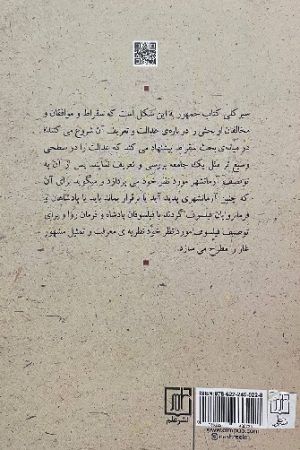 سیر کلی کتاب جمهور به این شکل است که سقراط و موافقان و
مخالفان او بحثی را درباره‌ی عدالت و تعریف آن شروع می کنند؛
در میانه‌ی بحث سقراط پیشنهاد می کند که عدالت را در سطحی
وسیع تر مثل یک جامعه بررسی و تعریف نمایند. پس از آن به
توصیف آرمانشهر مورد نظر خود می پردازد و میگوید برای آن
که چنین آرمانشهری پدید آید یا برقرار بماند باید یا پادشاهان و
فرمانروایان فیلسوف گردند یا فیلسوفان پادشاه و فرمان روا و برای
توصیف فیلسوف مورد نظر خود نظریه ی معرفت و تمثیل مشهور
غار را مطرح می سازد.
نشر علم